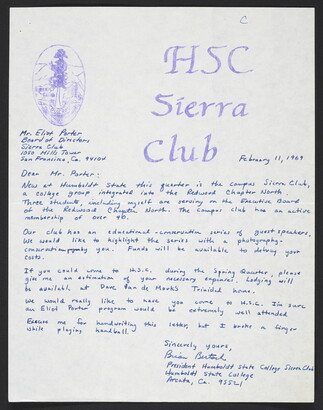 C
HSC
Sierra
Club
Mr. Eliot Porter
Board of Directors
Sierra Club
1050 Mills Tower
San Francisco, Ca. 94104
February 11, 1969
Dear Mr. Porter:
New at Humboldt State this quarter is the campus Sierra Club,
a college group integrated into the Redwood Chapter North.
Three students, including myself are serving on the Executive Board
of the Redwood Chapter North. The campus club has an active
membership of over 40.
Our club has an educational-conservation series of guest speakers.
We would like to highlight the series with a photography-
conservation by you. Funds will be available to defray your
costs.
If you could come to H.S.C. during the Spring Quarter, please
give me an estimation of your necessary expenses. Lodging will
be available at Dave Van de Mark's Trinidad home.
We would really like to have you come to H.S.C. I'm sure
an Eliot Porter program would be extremely well attended
Excuse me for handwriting this letter, but I broke a finger
while playing handball.
Sincerely yours,
Brian
President Humboldt State College Sierra Club
Humboldt State College
Arcata, Ca. 95521